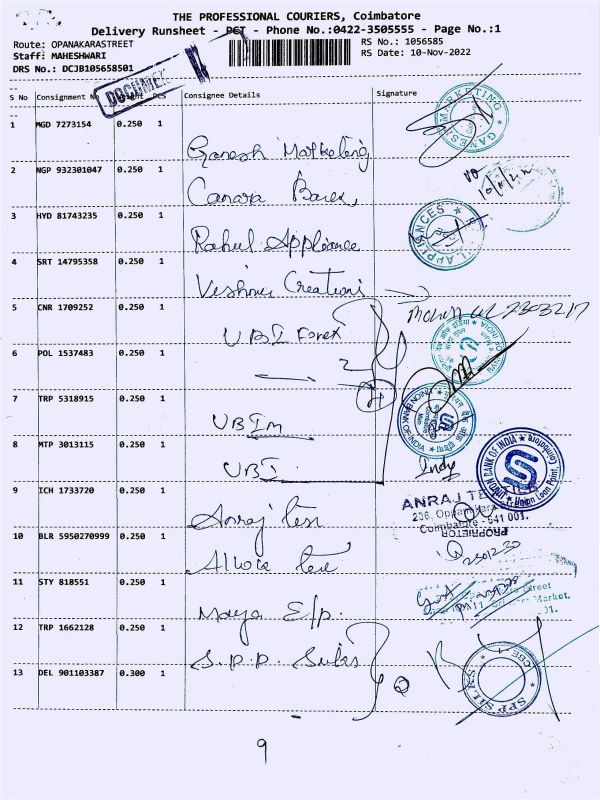 THE PROFESSIONAL COURIERS, Coimbatore
Delivery Runsheet - PCT - Phone No.:0422-3505555 - Page No.:1
Route: OPANAKARASTREET
RS No.: 1056585
Staff: MAHESHWARI
RS Date: 10-Nov-2022
DRS No.: DCJB105658501
DOCUMENT
S No Consignment No Pcs Consignee Details Signature
1 MGD 7273154 0.250 1
Ganesh Marketing
GANESH MARKETING
2 NGP 932301047 0.250 1
Canara Bank
3 HYD 81743235 0.250 1
Rahul Appliance
APPLIANCES
4 SRT 14795358 0.250 1
Vishnu Creations
5 CNR 1709252 0.250 1
UBI Forex
6 POL 1537483 0.250 1
2
7 TRP 5318915 0.250 1
UBIm
UNION BANK OF INDIA
8 MTP 3013115 0.250 1
UBI
UNION BANK OF INDIA
Coimbatore
Union Loan Point
9 ICH 1733720 0.250 1
Anraj Tex
ANRAJ TE
236, Oppanakara
Coimbatore - 641 001.
PROPRIETOR
10 BLR 5950270999 0.250 1
11 STY 818551 0.250 1
Street
Market.
Maya E/p.
12 TRP 1662128 0.250 1
S.P.P. Silks
SPP SILKS
CBE-1
13 DEL 901103387 0.300 1
9